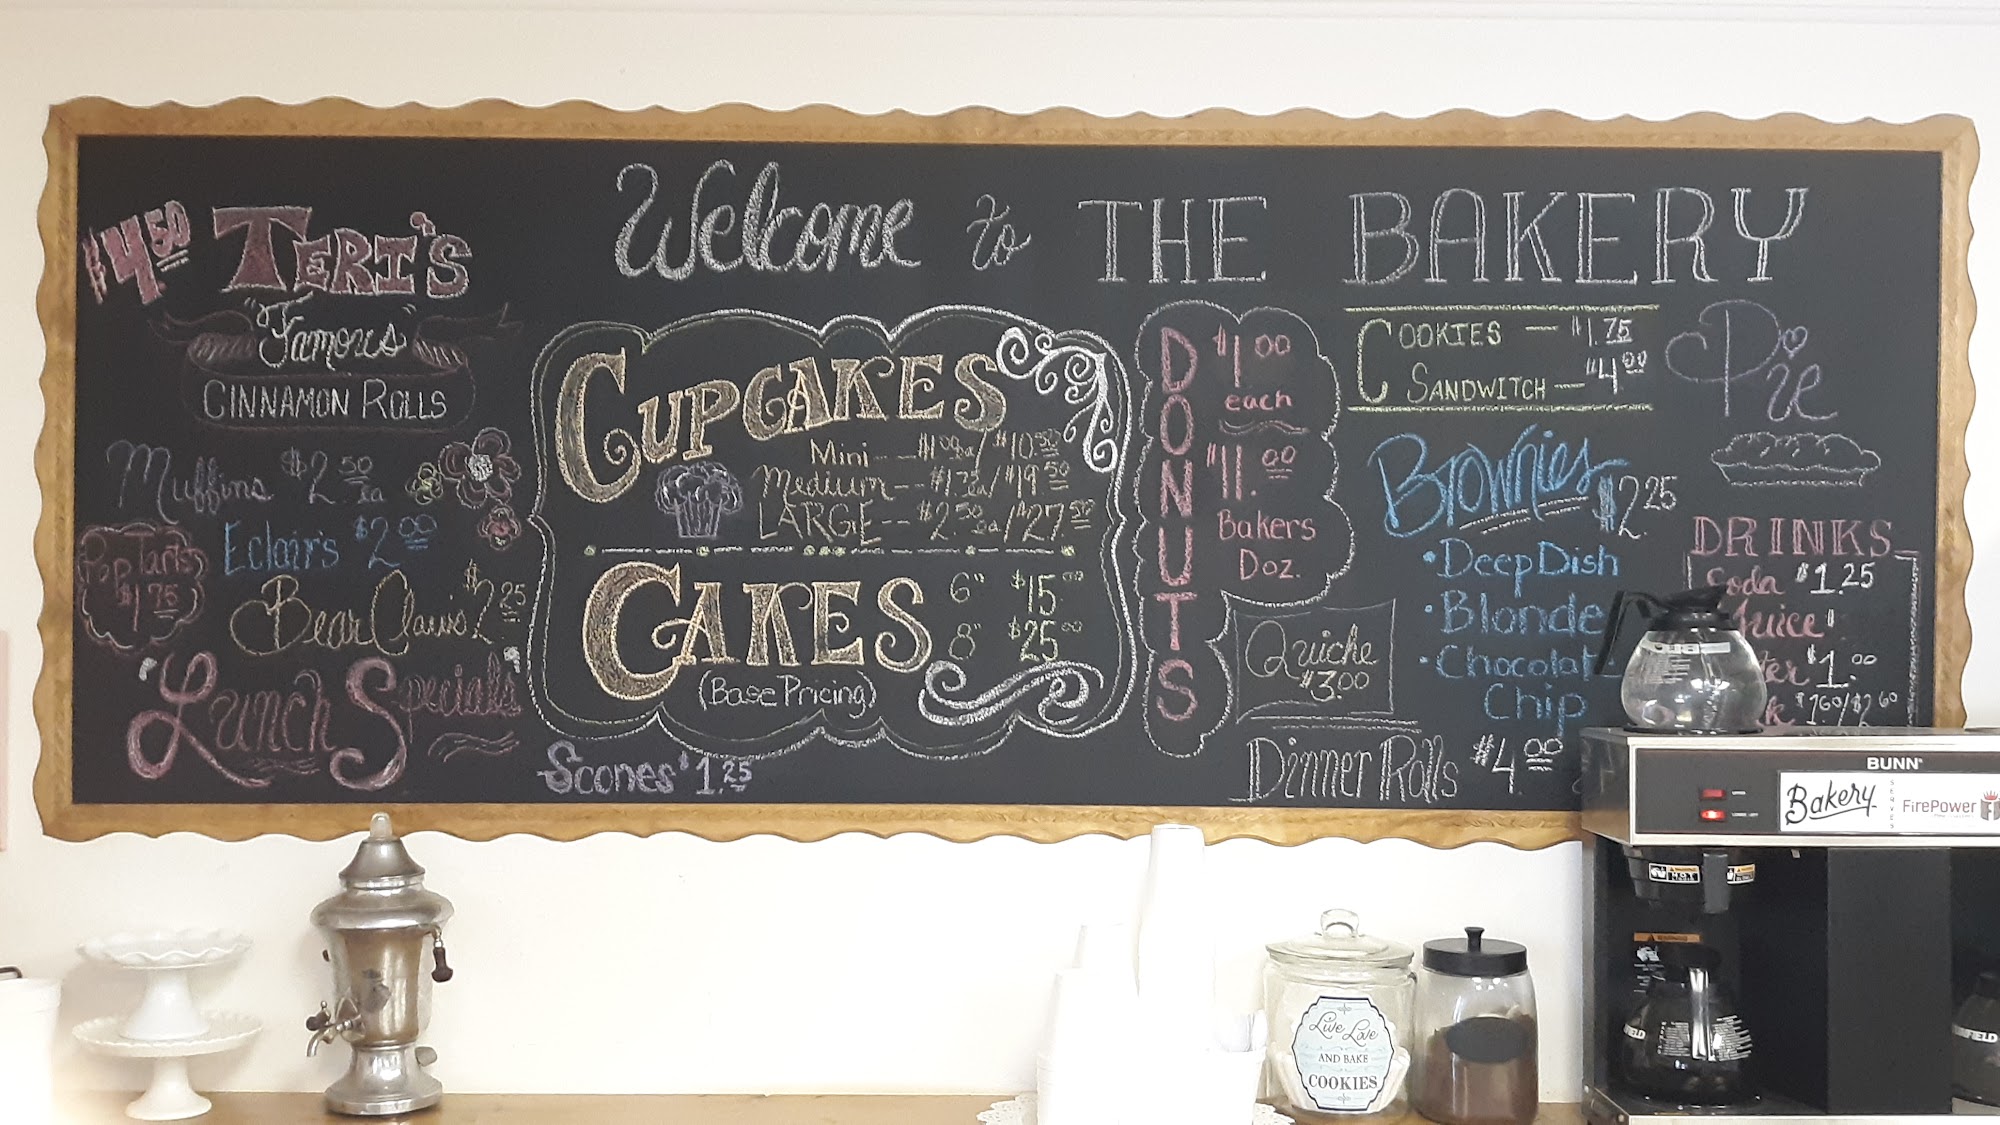 Welcome to THE BAKERY
$4.50 TERI'S
"Famous"
CINNAMON ROLLS
Muffins $2.50 ea
Eclair's $2.00
Pop Tarts
$1.75
Bear Claws $2.25
"Lunch Specials"
CUPCAKES
Mini
Medium -- $1.75 ea/$19.50
LARGE -- $2.50 ea./$27.50
CAKES
6" $15.00
8" $25.00
(Base Pricing)
Scones $1.25
DONUTS
$1.00
each
$11.00
Bakers
Doz.
Quiche
$3.00
Dinner Rolls $4.00
COOKIES — $1.75
COOKIE SANDWITCH — $4.00
Pie
Brownies $2.25
• Deep Dish
• Blonde
• Chocolat
Chip
DRINKS
Soda $1.25
Juice
$1.00
BUNN
Bakery
SERVES
FirePower
Live Love
AND BAKE
COOKIES